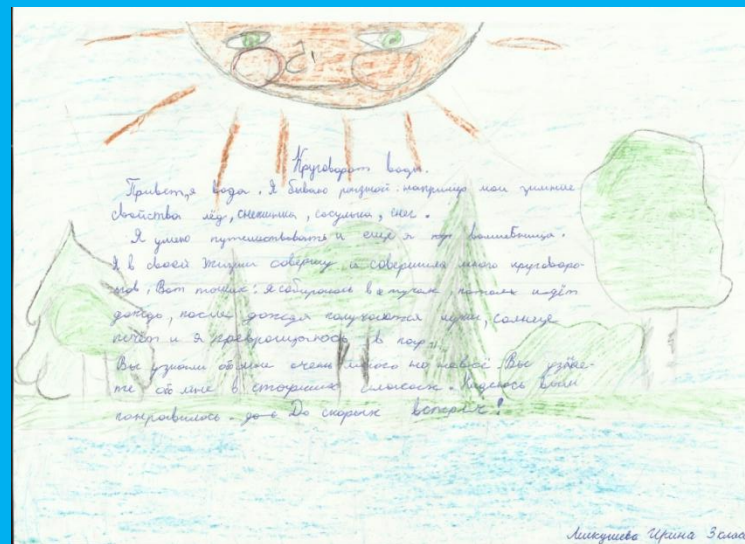 Круговорот воды.
Привет, я вода. Я бываю разной: например мои зимние
свойства лёд, снежинка, сосулька, снег.
Я умею путешествовать и ещё я волшебница.
Я в своей жизни совершу и совершила много круговоро-
тов. Вот : я собираюсь в тучах, потом идёт
дождь, после дождя получаются лужи, солнце
печёт и я превращаюсь в пар.
Вы узнали обо мне очень много Вы узнае-
те обо мне в старших классах. Надеюсь вам
понравилось. До скорых встреч!
Ирина 3 клас